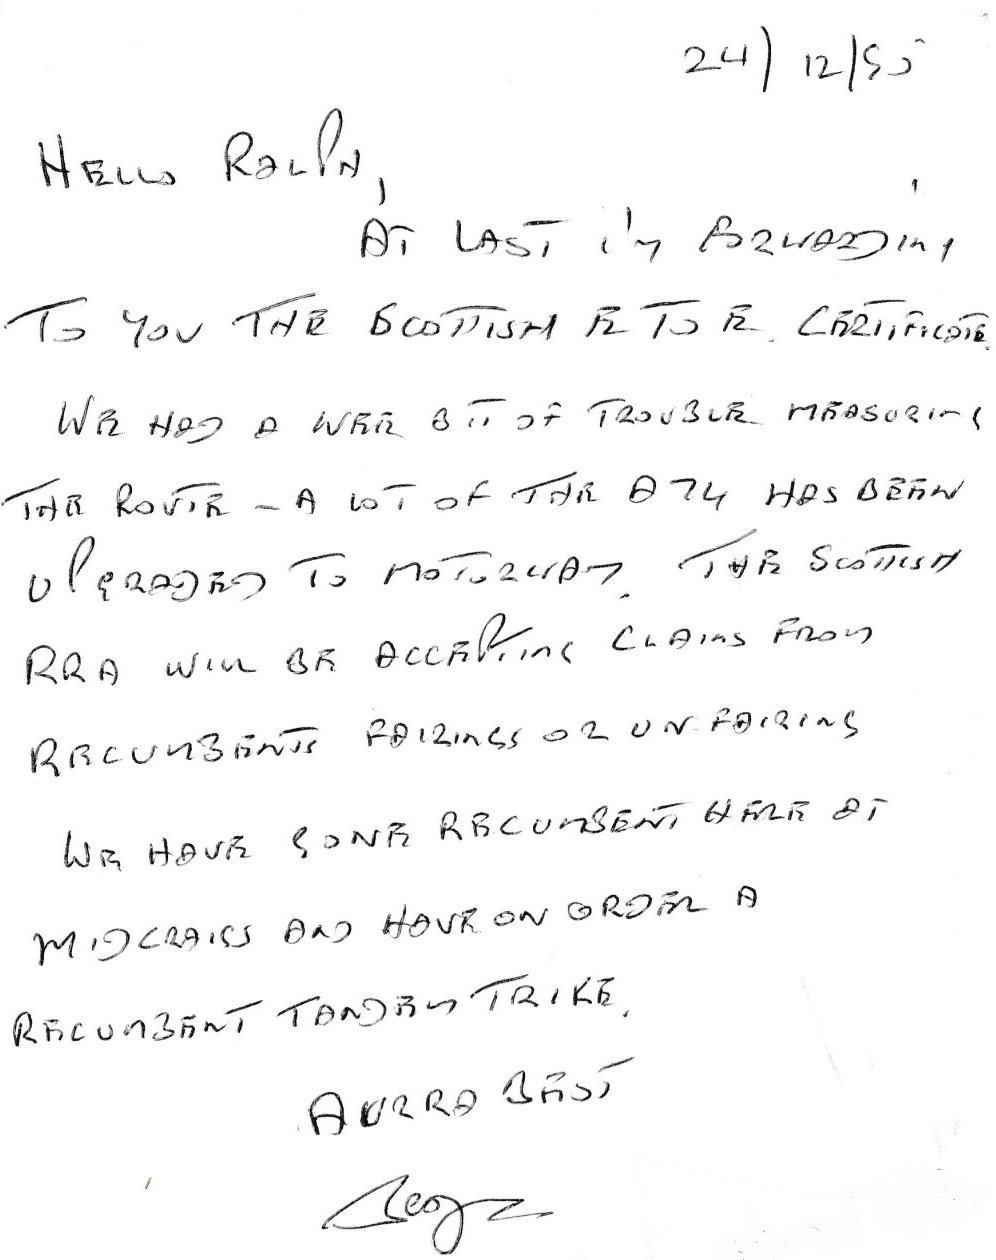 24/12/95
HELLO RALPH,
AT LAST I'M FORWARDING
TO YOU THE SCOTTISH E TO E CERTIFICATE.
WE HAD A WEE BIT OF TROUBLE MEASURING
THE ROUTE - A LOT OF THE A74 HAS BEEN
UPGRADED TO MOTORWAY. THE SCOTTISH
RRA WILL BE ACCEPTING CLAIMS FROM
RECUMBENTS FAIRINGS OR UNFAIRING
WE HAVE SOME RECUMBENT HERE AT
MIDCRAIGS AND HAVE ON ORDER A
RECUMBENT TANDEM TRIKE.
AURRA BEST